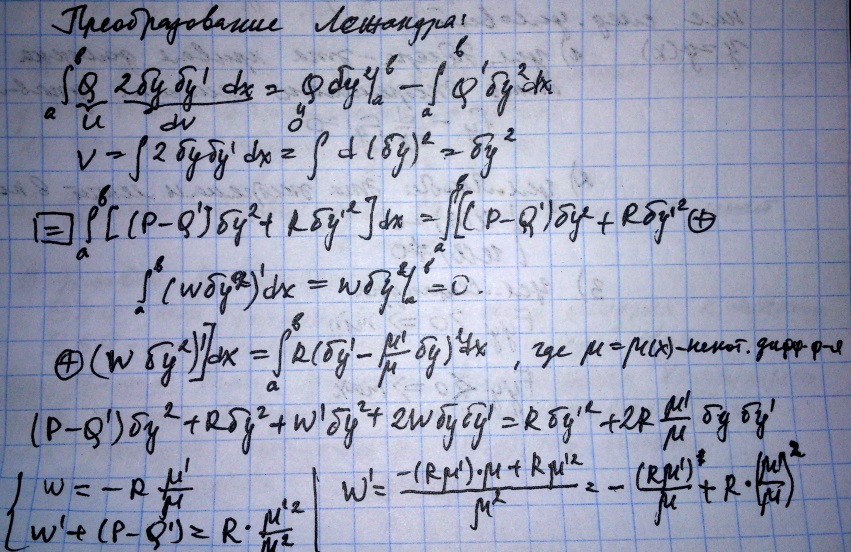 Преобразование Лежандра:
∫_a^b Q 2δyδy' dx = Q δy²|_a^b − ∫_a^b Q'δy² dx
u dv 0
v = ∫ 2δyδy' dx = ∫ d(δy)² = δy²
= ∫_a^b [(P−Q')δy² + Rδy'²]dx = ∫_a^b [(P−Q')δy² + Rδy'² ⊕
∫_a^b (wδy²)'dx = wδy²|_a^b = 0.
⊕ (w δy²)']dx = ∫_a^b R(δy' − μ'/μ δy)² dx, где μ = μ(x) – некот. дифф. ф-я
(P−Q')δy² + Rδy² + w'δy² + 2wδyδy' = Rδy'² + 2R μ'/μ δy δy'
{ w = −R μ'/μ | w' = (−(Rμ')·μ + Rμ'²)/μ² = −(Rμ')'/μ + R·(μ'/μ)²
w' + (P−Q') = R · μ'²/μ²